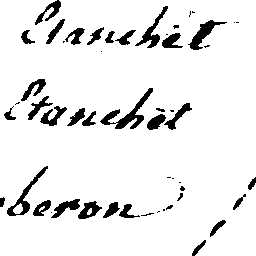 Etanchet
Etanchet
beron